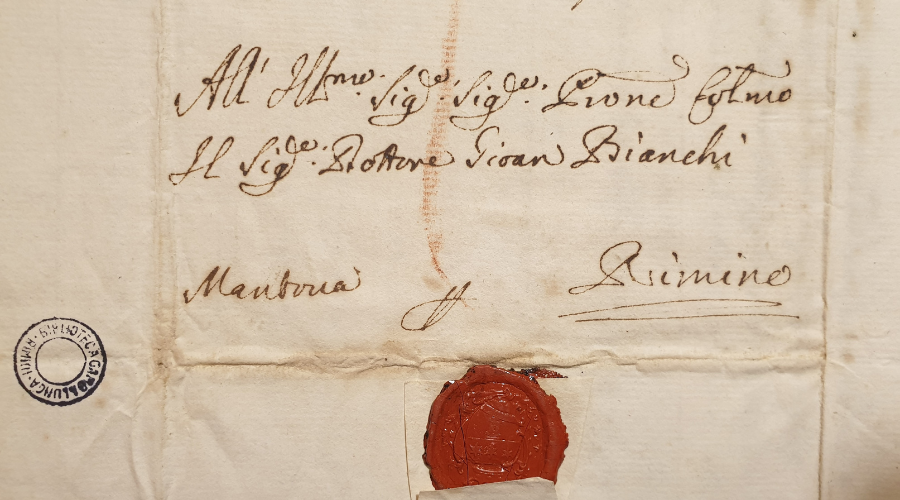 All' Ill:mo Sig:re Sig:re Prone Col:mo
Il Sig:re Dottore Gioan Bianchi
Mantova Rimino
BIBLIOTECA GAMBALUNGA · RIMINI ·